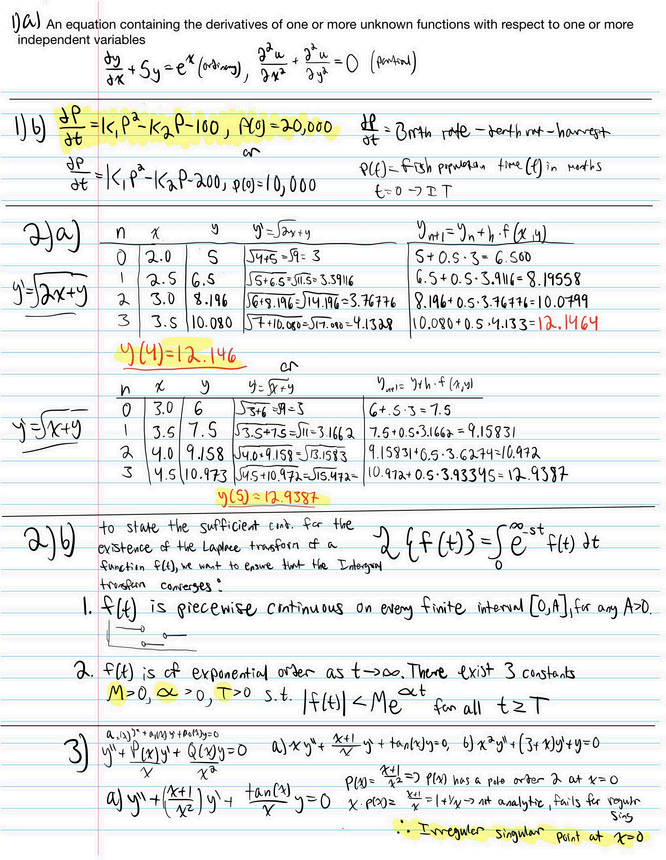 1)a) An equation containing the derivatives of one or more unknown functions with respect to one or more
independent variables
dy/dx + 5y = e^x (ordinary), ∂²u/∂x² + ∂²u/∂y² = 0 (partial)
1)b) dP/dt = K₁P² - K₂P - 100, P(0) = 20,000
dP/dt = Birth rate - death rate - harvest
or
dP/dt = K₁P² - K₂P - 200, P(0) = 10,000
P(t) = fish population time (t) in months
t=0 → I T
2)a)
y' = √2x+y
n x y y' = √2x+y y_{n+1} = y_n + h · f(x,y)
0 2.0 5 √4+5 = √9 = 3 5 + 0.5 · 3 = 6.500
1 2.5 6.5 √5+6.5 = √11.5 = 3.39116 6.5 + 0.5 · 3.9116 = 8.19558
2 3.0 8.196 √6+8.196 = √14.196 = 3.76776 8.196 + 0.5 · 3.76776 = 10.0799
3 3.5 10.080 √7+10.080 = √17.080 = 4.1328 10.080 + 0.5 · 4.133 = 12.1464
y(4) = 12.146
or
y' = √x+y
n x y y = √x+y y_{n+1} = y+h · f(x,y)
0 3.0 6 √3+6 = √9 = 3 6 + .5 · 3 = 7.5
1 3.5 7.5 √3.5+7.5 = √11 = 3.1662 7.5 + 0.5 · 3.1662 = 9.15831
2 4.0 9.158 √4.0+9.158 = √13.1583 9.15831 + 0.5 · 3.6274 = 10.972
3 4.5 10.973 √4.5+10.972 = √15.472 = 10.972 + 0.5 · 3.93345 = 12.9387
y(5) = 12.9387
2)b) to state the sufficient cond. for the
existence of the Laplace transform of a
function f(t), we want to ensure that the Intergral
transform converges:
ℒ{f(t)} = ∫₀^∞ e^{-st} f(t) dt
1. f(t) is piecewise continuous on every finite interval [0,A], for any A>0.
2. f(t) is of exponential order as t→∞. There exist 3 constants
M>0, α>0, T>0 s.t. |f(t)| < Me^{αt} for all t≥T
3) y'' + P(x)/x y' + Q(x)/x² y = 0 a) xy'' + x+1/x y' + tan(x)y = 0, b) x²y'' + (3+x)y' + y = 0
a) y'' + (x+1/x²) y' + tan(x)/x y = 0
P(x) = x+1/x² => P(x) has a pole order 2 at x=0
x · P(x) = x+1/x = 1+1/x → not analytic, fails for regular
sing
∴ Irregular singular point at x=0